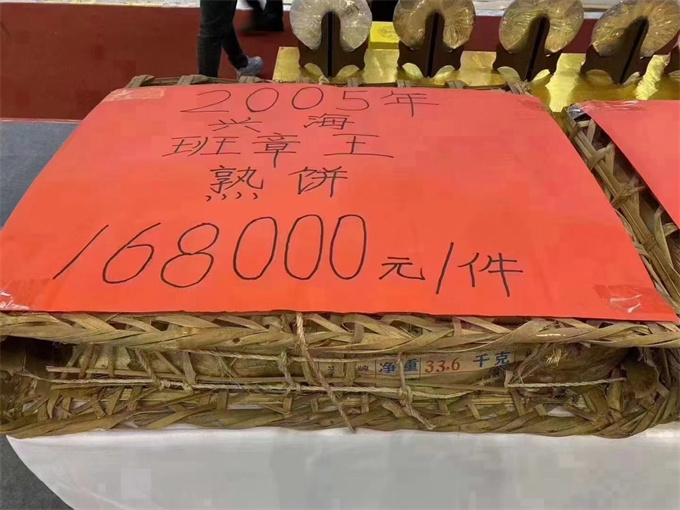 2005年
兴海
班章王
熟饼
168000元/件
净重 33.6 千克